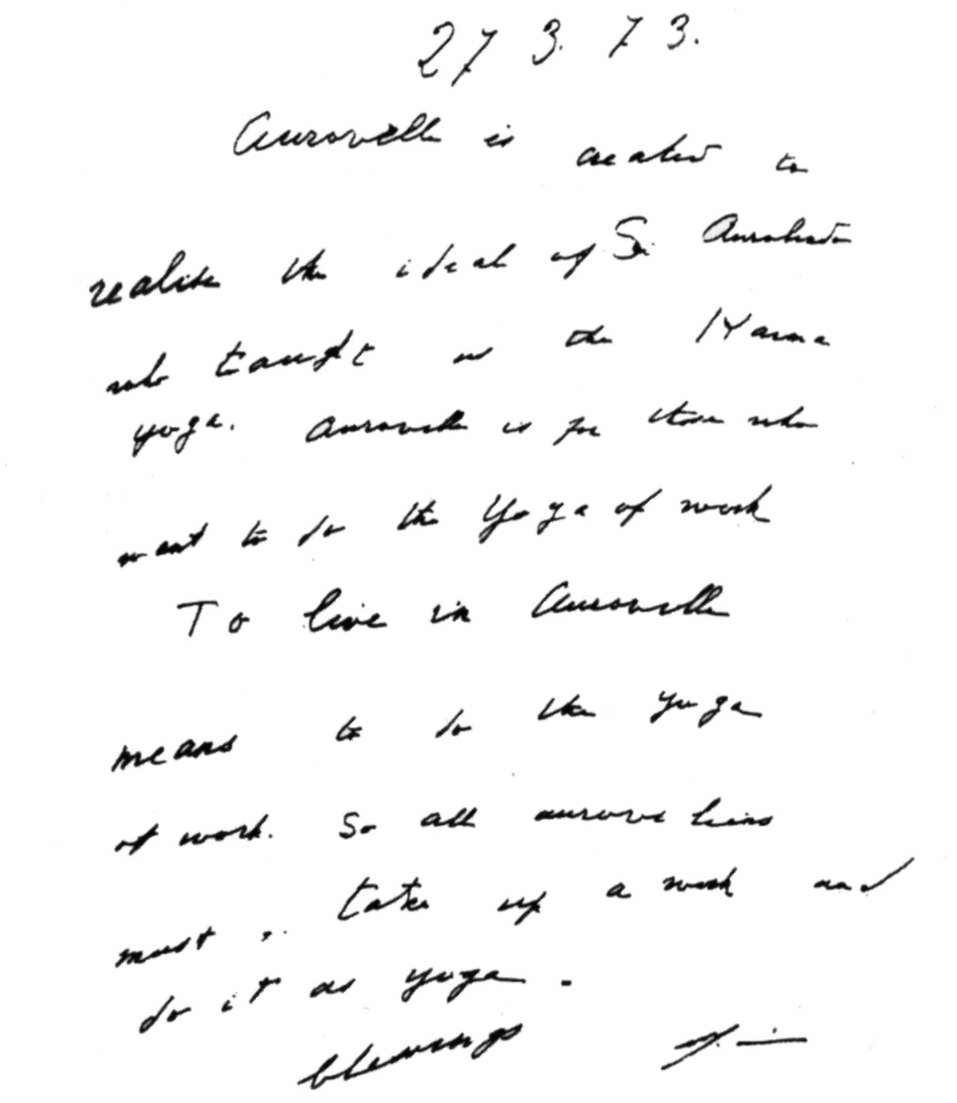 27 3. 73.
Auroville is created to
realise the ideal of Sri Aurobindo
who taught us the Karma
yoga. Auroville is for those who
want to do the Yoga of work
To live in Auroville
means to do the yoga
of work. So all aurovilians
must, take up a work and
do it as yoga.
blessings